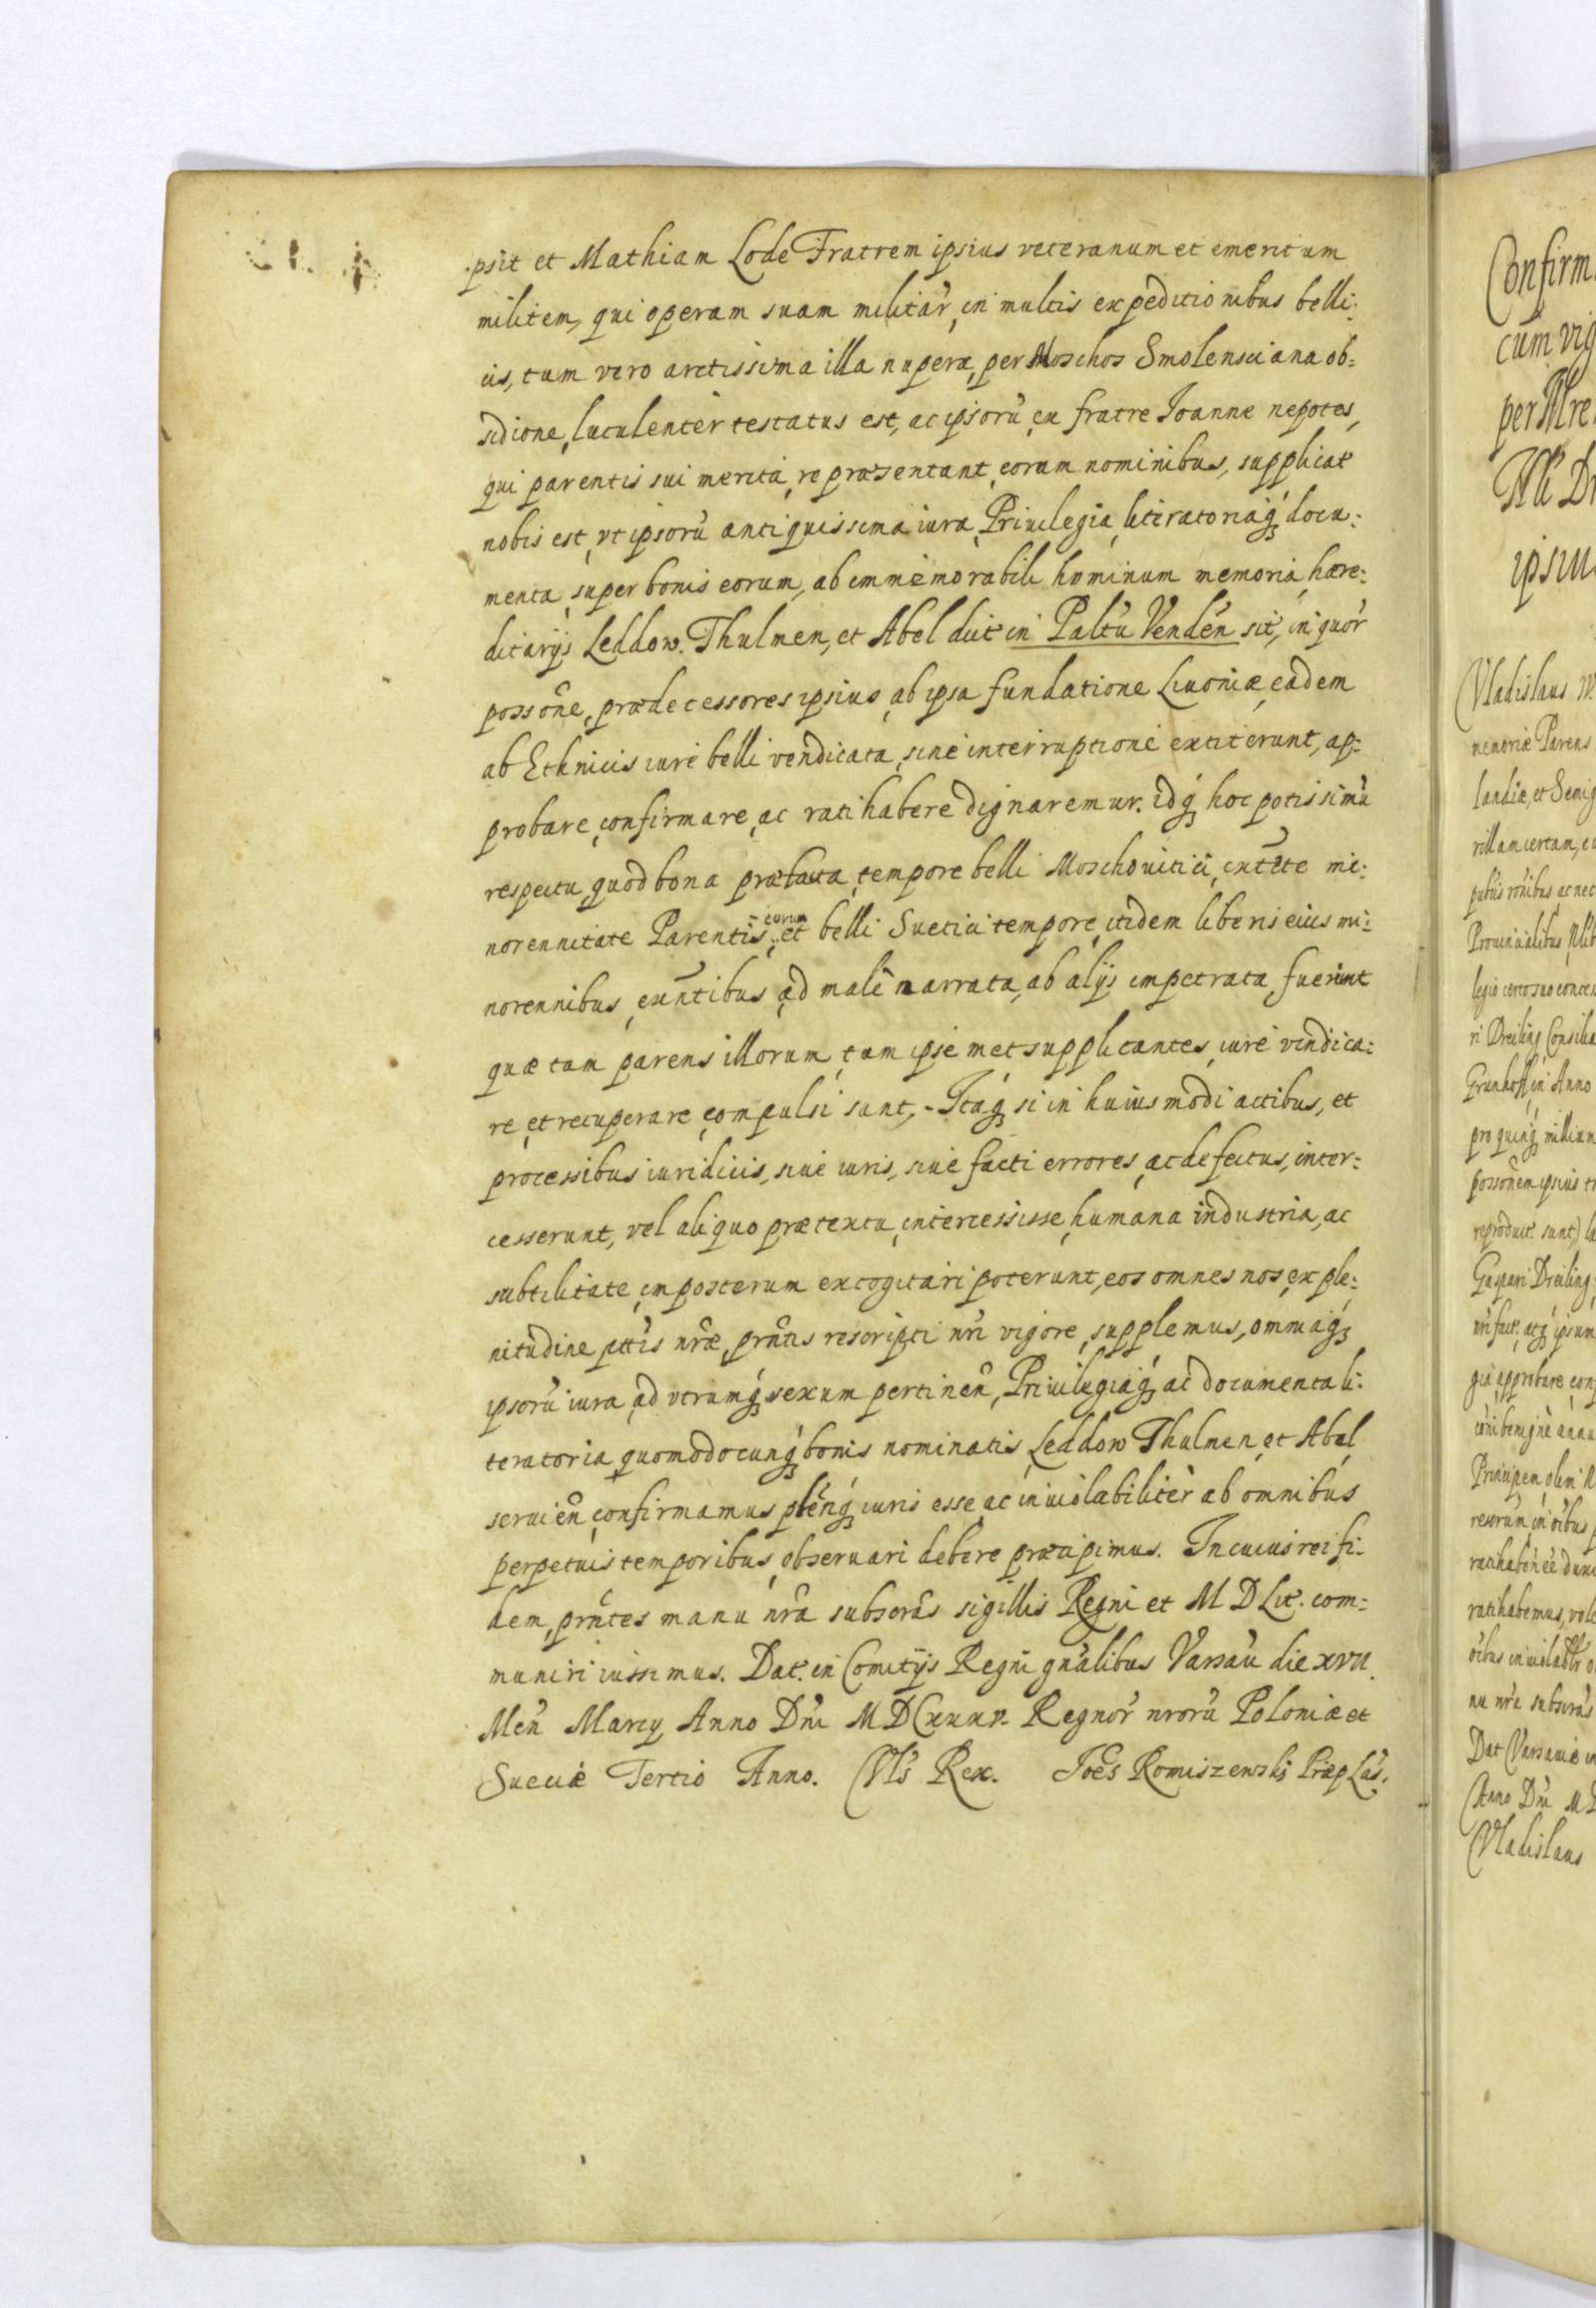 psit et Mathiam Lode Fratrem ipsius veteranum et emeritum
militem, qui operam suam militar̃, in multis expeditionibus belli:
cis, tum vero arctissima illa nupera, per Moschos Smolensciana ob:
sidione, luculenter testatus est, ac ipsorũ, ex fratre Joanne nepotes,
qui parentis sui merita, repræsentant, eorum nominibus, supplicat̃
nobis est, vt ipsorũ antiquissima iura, Priuilegia, literatoriaq́ȝ docu:
menta, super bonis eorum, ab immemorabili hominum memoria, hære:
ditarijs Leddow. Thulmen, et Abel dict̃ in Paltũ Venden̄ sit̃, in quor̃
possõne, prædecessores ipsius, ab ipsa fundatione Liuoniæ, eadem
ab Ethnicis iure belli vendicata, sine interruptione extiterunt, ap:
probare, confirmare, ac ratihabere dignaremur. idq́ȝ hoc potissimũ
respectu, quod bona præfata, tempore belli Moschouitici, exñte mi:
norennitate Parentis, eorum et belli Suetici tempore, itidem liberis eius mi:
norennibus, exñtibus, ad male narrata, ab alijs impetrata, fuerint
quæ tam parens illorum, tam ipsi met supplicantes, iure vindica:
re, et recuperare, compulsi sunt, - Itaq́ȝ si in huiusmodi actibus, et
processibus iuridicis, siue iuris, siue facti errores, ac defectus, inter:
cesserunt, vel aliquo prætextu, intercessisse, humana industria, ac
subtilitate, in posterum excogitari poterunt, eos omnes nos, ex ple:
nitudine pttis nr̃æ, prñtis rescripti nr̃i vigore, supplemus, omniaq́ȝ
ipsorũ iura, ad vtrumq́ȝ sexum pertinen̄, Priuilegiaq́ȝ ac documenta li:
teratoria, quomodocunq́ȝ bonis nominatis, Leddow Thulmen, et Abel
seruien̄, confirmamus plẽnq́ȝ iuris esse, ac inuiolabiliter ab omnibus
perpetuis temporibus, obseruari debere præcipimus. In cuius rei fi:
dem, prñtes manu nr̃a subscrãs sigillis Regni et M D Lit̃. com:
muniri iussimus. Dat̃. in Comitijs Regni gnãlibus Varsau̅ die XVII.
Men̄ Marcy Anno Dñi MDCXXXV. Regnor̃ nrorũ Poloniæ et
Sueciæ Tertio Anno. Vls̃ Rex. Joẽs Romiszewski Præp Lãs.
Confirm
cum vig
per
ipsiu
Vladislaus
memoriæ Parens
landiæ, et Semig
villam certam, e
Prouincialibus
legio certo suo
ri Dreiling Consilia
in Anno
pro quinq́ȝ millium
possõnem ipsius
reproduct̃. sunt)
Gaspari Dreiling
atq́ȝ ipsum
approbare
benigne annu
Principem olim
ratihabemus
nu nr̃a subscrãs
Dat Varsauiæ
Anno Dñi
Vladislaus